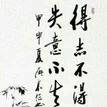 得志不得
失意不失
甲申夏